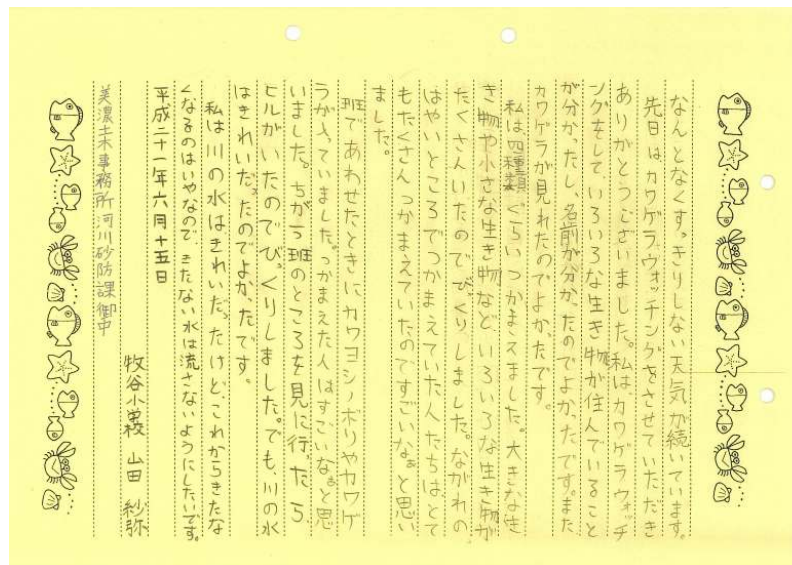 なんとなくすっきりしない天気が続いています。
先日はカワゲラウォッチングをさせていただき
ありがとうございました。私はカワゲラウォッチ
ングをして、いろいろな生き物が住んでいること
が分かったし、名前が分かったのでよかったです。また
カワゲラが見れたのでよかったです。
私は四種類ぐらいつかまえました。大きな生
き物や小さな生き物など、いろいろな生き物が
たくさんいたのでびっくりしました。ながれの
はやいところでつかまえていた人たちはとて
もたくさんつかまえていたのですごいなぁと思い
ました。
班であわせたときにカワヨシノボリやカワゲ
ラが入っていました。つかまえた人はすごいなぁと思
いました。ちがう班のところを見に行ったら
ヒルがいたのでびっくりしました。でも、川の水
はきれいだったのでよかったです。
私は川の水はきれいだったけど、これからきたな
くなるのはいやなので、きたない水は流さないようにしたいです。
平成二十一年六月十五日
牧谷小学校 山田 紗弥
美濃土木事務所河川砂防課御中